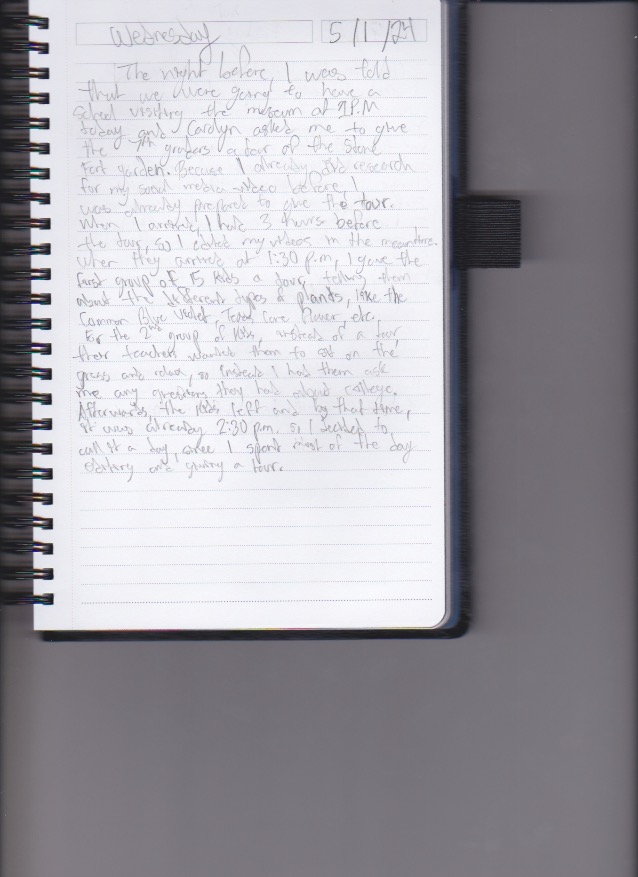 Wednesday 5/1/24
The night before, I was told
that we were going to have a
school visiting the museum at 1P.M
today and Carolyn asked me to give
the 7th graders a tour of the Stone
Fort garden. Because I already did research
for my social media video before, I
was already prepared to give the tour.
When I arrived, I had 3 hours before
the tour, so I edited my videos in the meantime.
When they arrived at 1:30 p.m, I gave the
first group of 15 kids a tour, telling them
about the different types of plants, like the
Common Blue Violet, Texas Cone flower, etc.
For the 2nd group of kids, instead of a tour,
their teachers wanted them to sit on the
grass and relax, so instead I had them ask
me any questions they had about college.
Afterwards, the kids left and by that time,
it was already 2:30 p.m. so I decided to
call it a day, since I spent most of the day
editing and giving a tour.